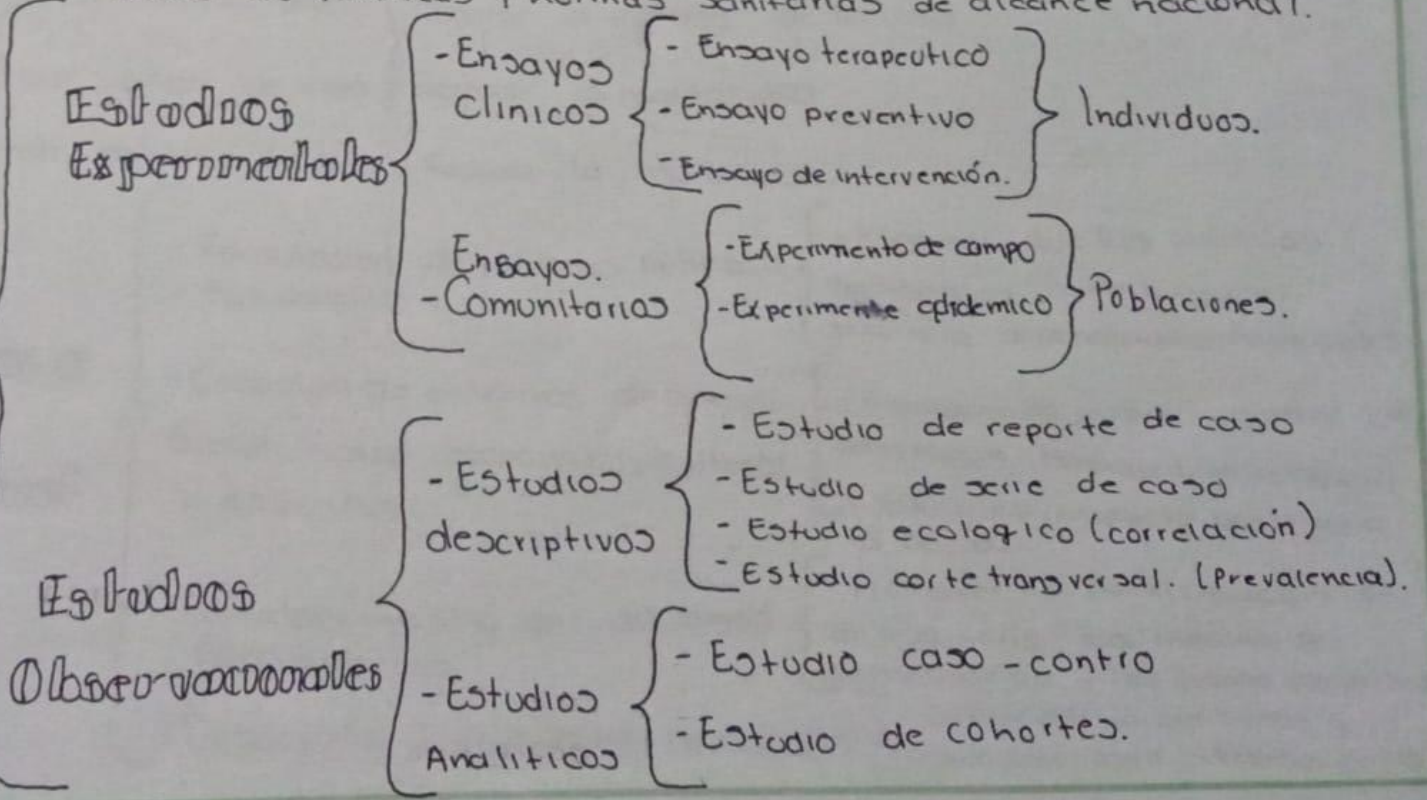 normas sanitarias de alcance nacional.
Estudios
Experimentales
- Ensayos
Clinicos
- Ensayo terapeutico
- Ensayo preventivo
- Ensayo de intervención.
Individuos.
Ensayos.
- Comunitarios
- Experimento de campo
- Experimente epidemico
Poblaciones.
Estudios
Observacionales
- Estudios
descriptivos
- Estudio de reporte de caso
- Estudio de serie de caso
- Estudio ecologico (correlación)
- Estudio corte transversal. (Prevalencia).
- Estudios
Analiticos
- Estudio caso - contro
- Estudio de cohortes.